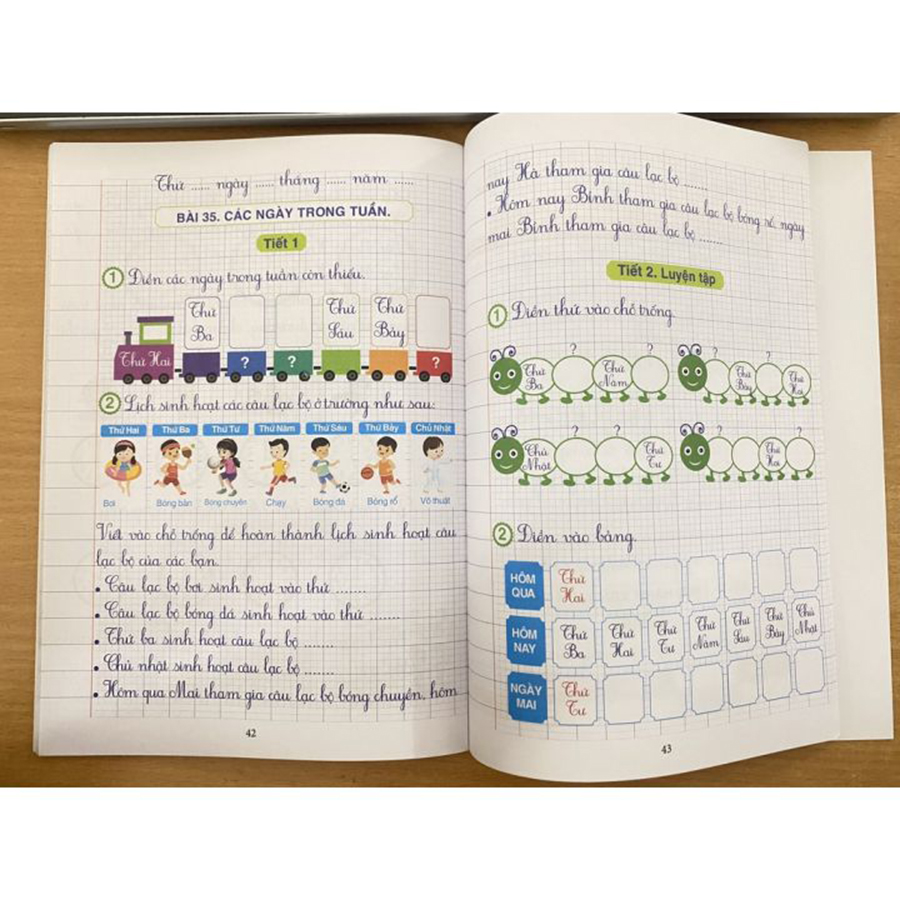 Thứ ...... ngày ...... tháng ...... năm ......
BÀI 35. CÁC NGÀY TRONG TUẦN.
Tiết 1
1 Điền các ngày trong tuần còn thiếu.
Thứ Hai
Thứ Ba
?
?
Thứ Sáu
Thứ Bảy
?
2 Lịch sinh hoạt các câu lạc bộ ở trường như sau:
Thứ Hai Thứ Ba Thứ Tư Thứ Năm Thứ Sáu Thứ Bảy Chủ Nhật
Bơi Bóng bàn Bóng chuyền Chạy Bóng đá Bóng rổ Võ thuật
Viết vào chỗ trống để hoàn thành lịch sinh hoạt câu
lạc bộ của các bạn.
• Câu lạc bộ bơi sinh hoạt vào thứ .......
• Câu lạc bộ bóng đá sinh hoạt vào thứ .......
• Thứ ba sinh hoạt câu lạc bộ .......
• Chủ nhật sinh hoạt câu lạc bộ .......
• Hôm qua Mai tham gia câu lạc bộ bóng chuyền, hôm
42
nay Hà tham gia câu lạc bộ .......
• Hôm nay Bình tham gia câu lạc bộ bóng rổ, ngày
mai Bình tham gia câu lạc bộ .......
Tiết 2. Luyện tập
1 Điền thứ vào chỗ trống.
? ?
Thứ Ba Thứ Năm
? ?
Thứ Bảy Thứ Hai
? ?
Chủ Nhật Thứ Tư
? ?
Thứ Hai
2 Điền vào bảng.
HÔM QUA Thứ Hai
HÔM NAY Thứ Ba Thứ Hai Thứ Tư Thứ Năm Thứ Sáu Thứ Bảy Chủ Nhật
NGÀY MAI Thứ Tư
43